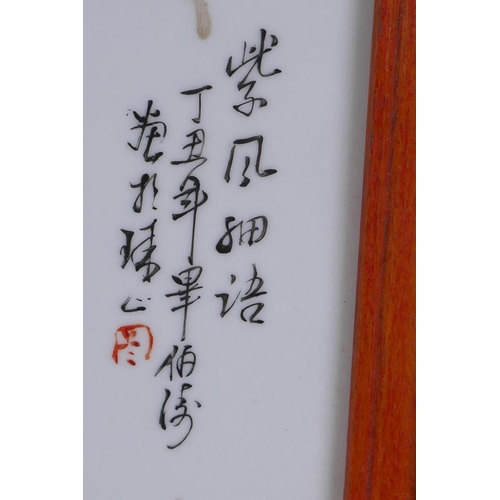 紫风细语
丁丑年畢伯涛
画于珠山